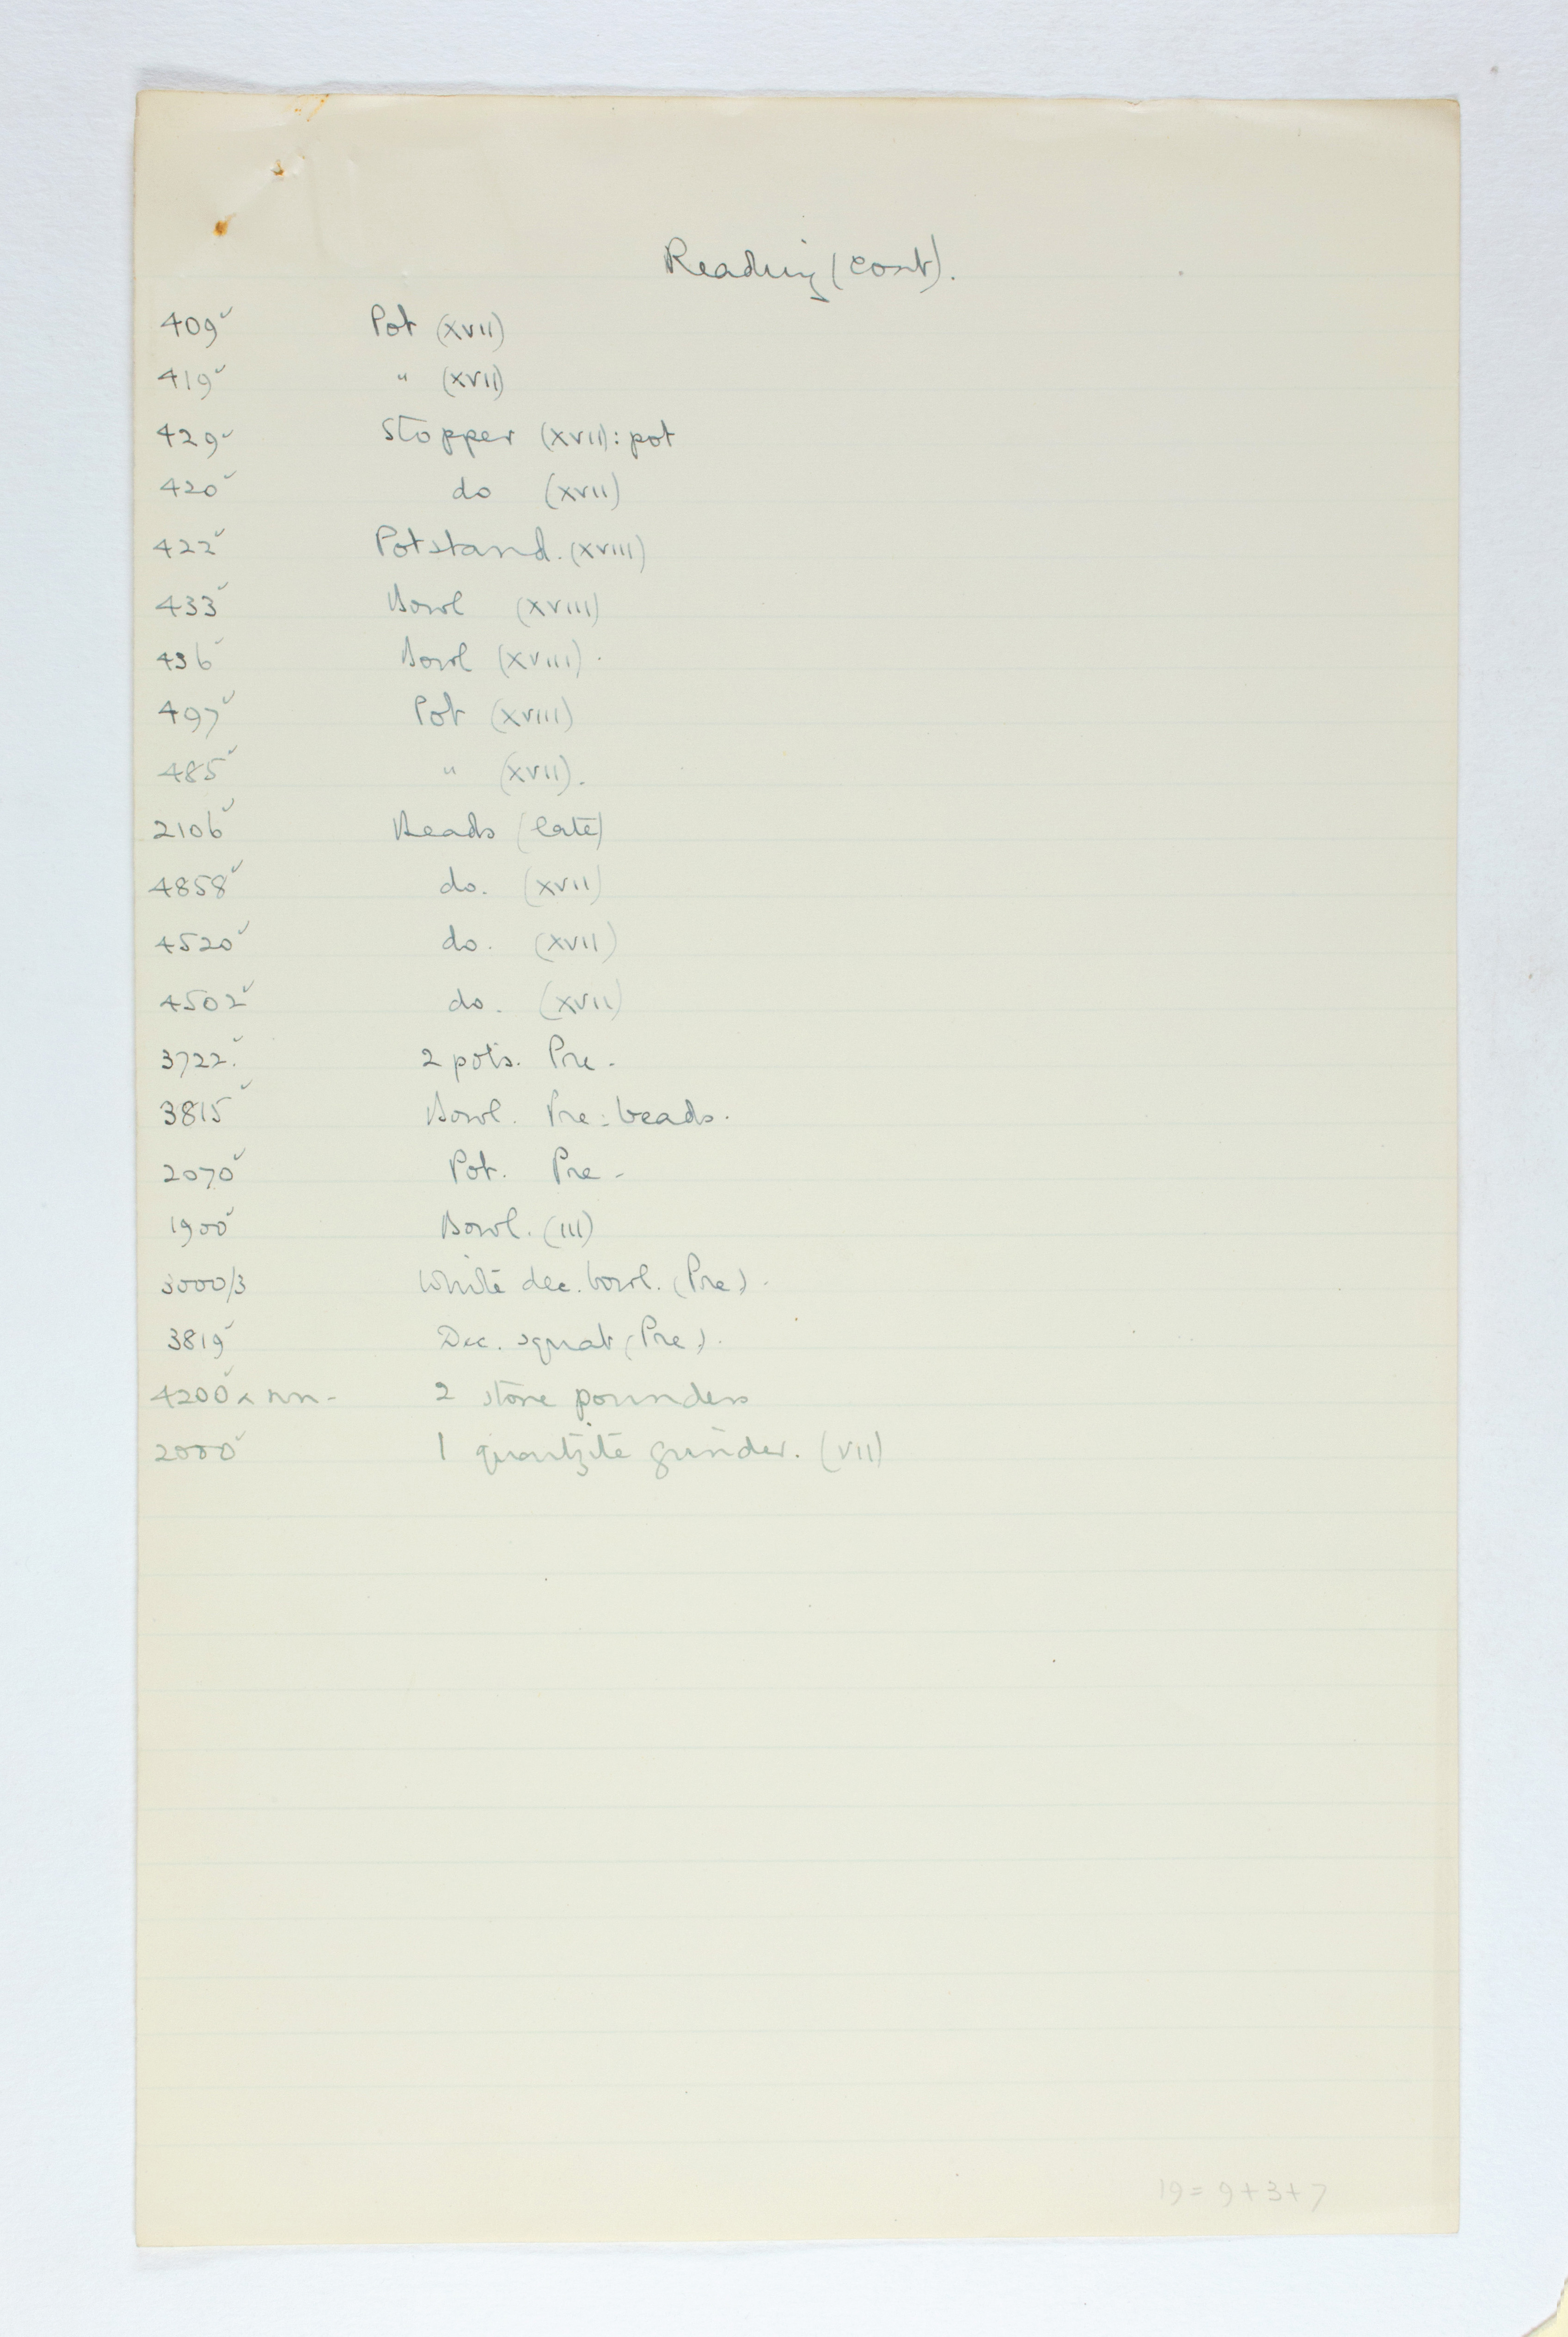 Reading (cont).
409 ✓ Pot (XVII)
419 ✓ " (XVII)
429 ✓ Stopper (XVII): pot
420 ✓ do (XVII)
422 ✓ Potstand. (XVIII)
433 ✓ Bowl (XVIII)
436 ✓ Bowl (XVIII).
497 ✓ Pot (XVIII)
485 ✓ " (XVII).
2106 ✓ Beads (late)
4858 ✓ do. (XVII)
4520 ✓ do. (XVII)
4502 ✓ do. (XVII)
3722. ✓ 2 pots. Pre-
3815 ✓ Bowl. Pre: beads.
2070 ✓ Pot. Pre-
1900 ✓ Bowl. (III)
3000/3 White dec. bowl. (Pre).
3819 ✓ Dec. squat (Pre).
4200 ✓ & nn- 2 stone pounders
2000 ✓ 1 quartzite grinder. (VII)
19 = 9 + 3 + 7